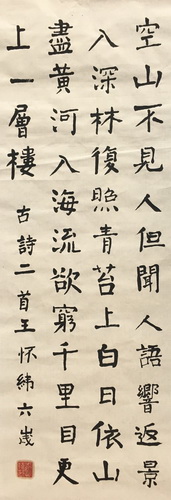 空山不見人但聞人語響返景
入深林復照青苔上白日依山
盡黃河入海流欲窮千里目更
上一層樓
古詩二首王怀緯六歲